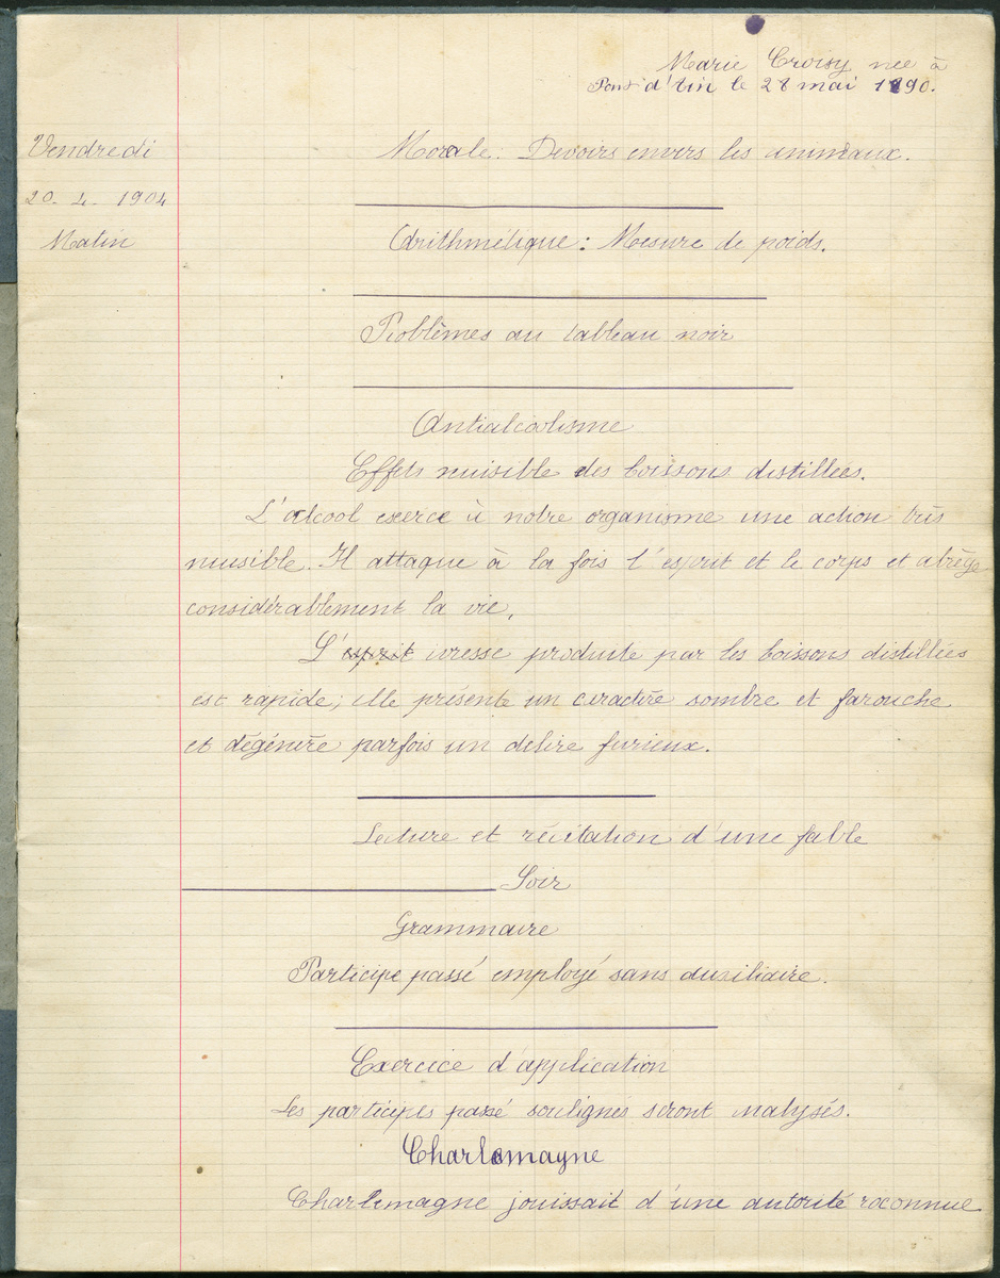 Marie Croisy née à
Pont d'Ain le 28 mai 1890.
Vendredi
Morale. Devoirs envers les animaux.
20. 4. 1904
Matin
Arithmétique : Mesure de poids.
Problèmes au tableau noir
Antialcoolisme
Effets nuisible des boissons distillées.
L'alcool exerce à notre organisme une action très
nuisible. Il attaque à la fois l'esprit et le corps et abrège
considérablement la vie.
L'esprit ivresse produite par les boissons distillées
est rapide; elle présente un caractère sombre et farouche
et dégénère parfois un delire furieux.
Lecture et récitation d'une fable
Soir
Grammaire
Participe passé employé sans auxiliaire.
Exercice d'application
Les participes passé soulignés seront analysés.
Charlemagne
Charlemagne jouissait d'une autorité reconnue